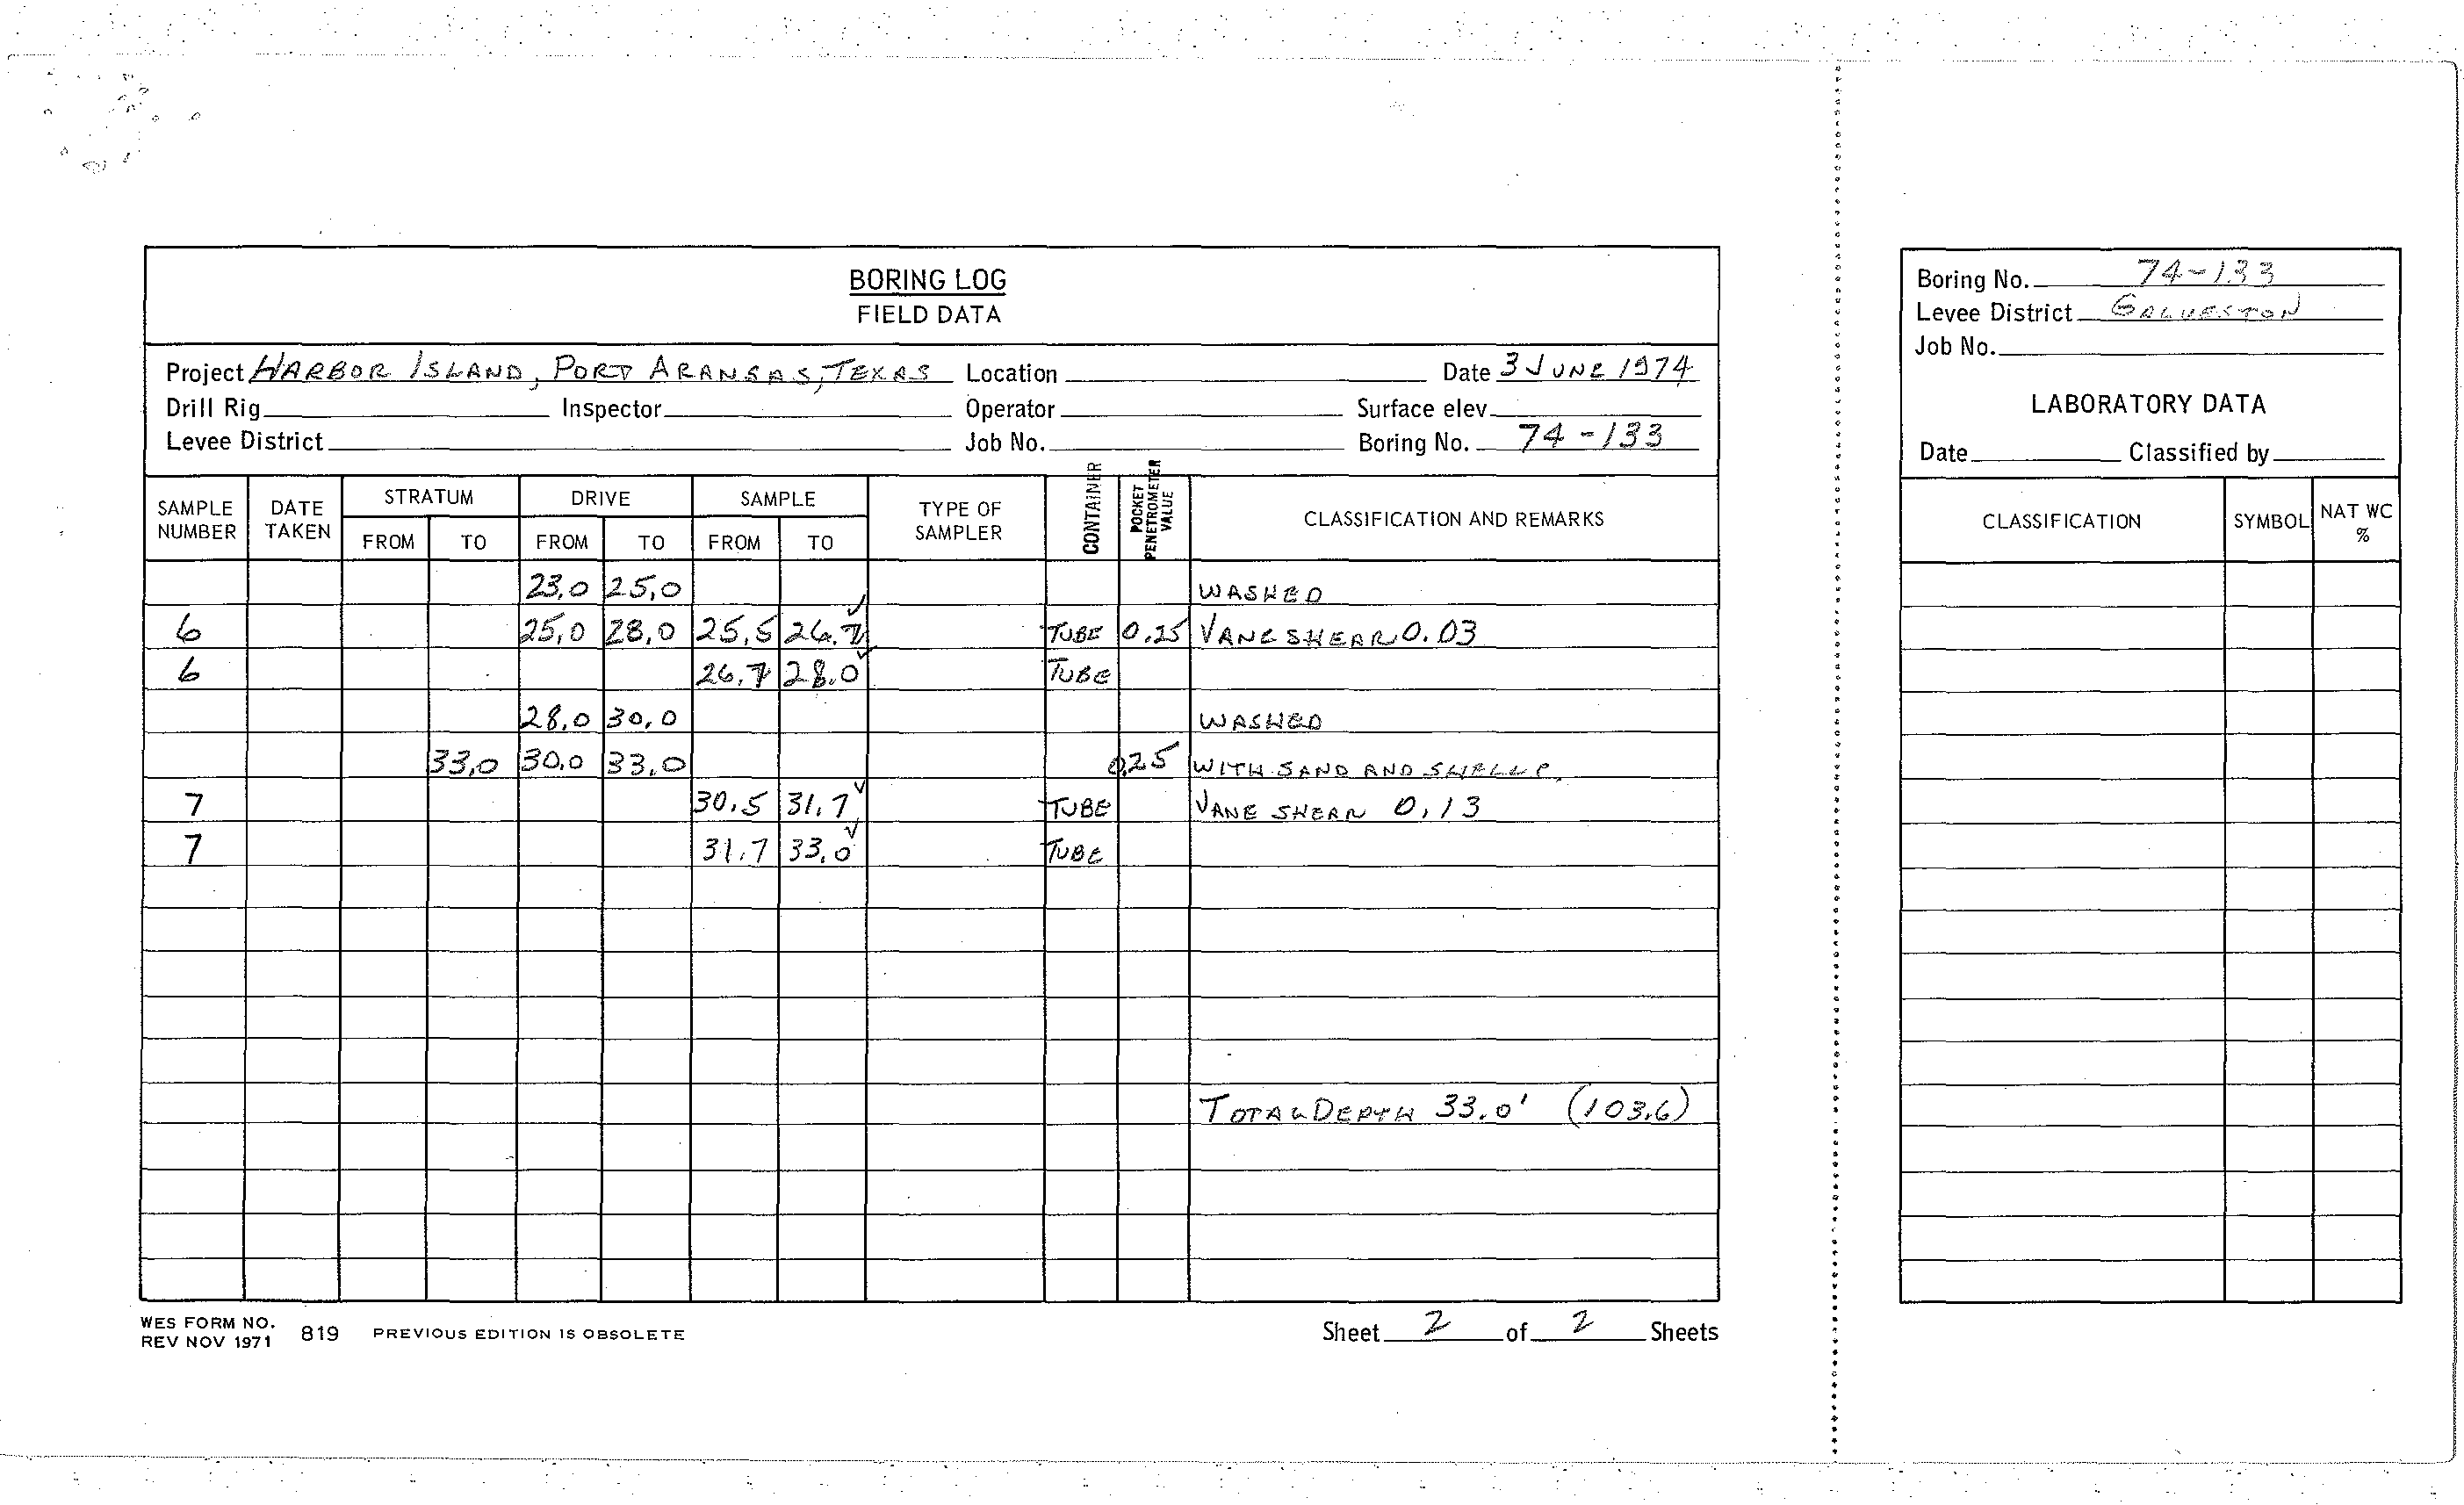 BORING LOG
FIELD DATA
Project HARBOR ISLAND, PORT ARANSAS, TEXAS Location Date 3 JUNE 1974
Drill Rig Inspector Operator Surface elev.
Levee District Job No. Boring No. 74-133
SAMPLE NUMBER DATE TAKEN STRATUM FROM TO DRIVE FROM TO SAMPLE FROM TO TYPE OF SAMPLER CONTAINER POCKET PENETROMETER VALUE CLASSIFICATION AND REMARKS
23.0 25.0 WASHED
6 25.0 28.0 25.5 26.7 ✓ TUBE 0.25 VANE SHEAR 0.03
6 26.7 28.0 ✓ TUBE
28.0 30.0 WASHED
33.0 30.0 33.0 0.25 WITH SAND AND SHELLS.
7 30.5 31.7 ✓ TUBE VANE SHEAR 0.13
7 31.7 33.0 ✓ TUBE
TOTAL DEPTH 33.0' (103.6)
WES FORM NO. 819 PREVIOUS EDITION IS OBSOLETE
REV NOV 1971
Sheet 2 of 2 Sheets
Boring No. 74-133
Levee District GALVESTON
Job No.
LABORATORY DATA
Date Classified by
CLASSIFICATION SYMBOL NAT WC %